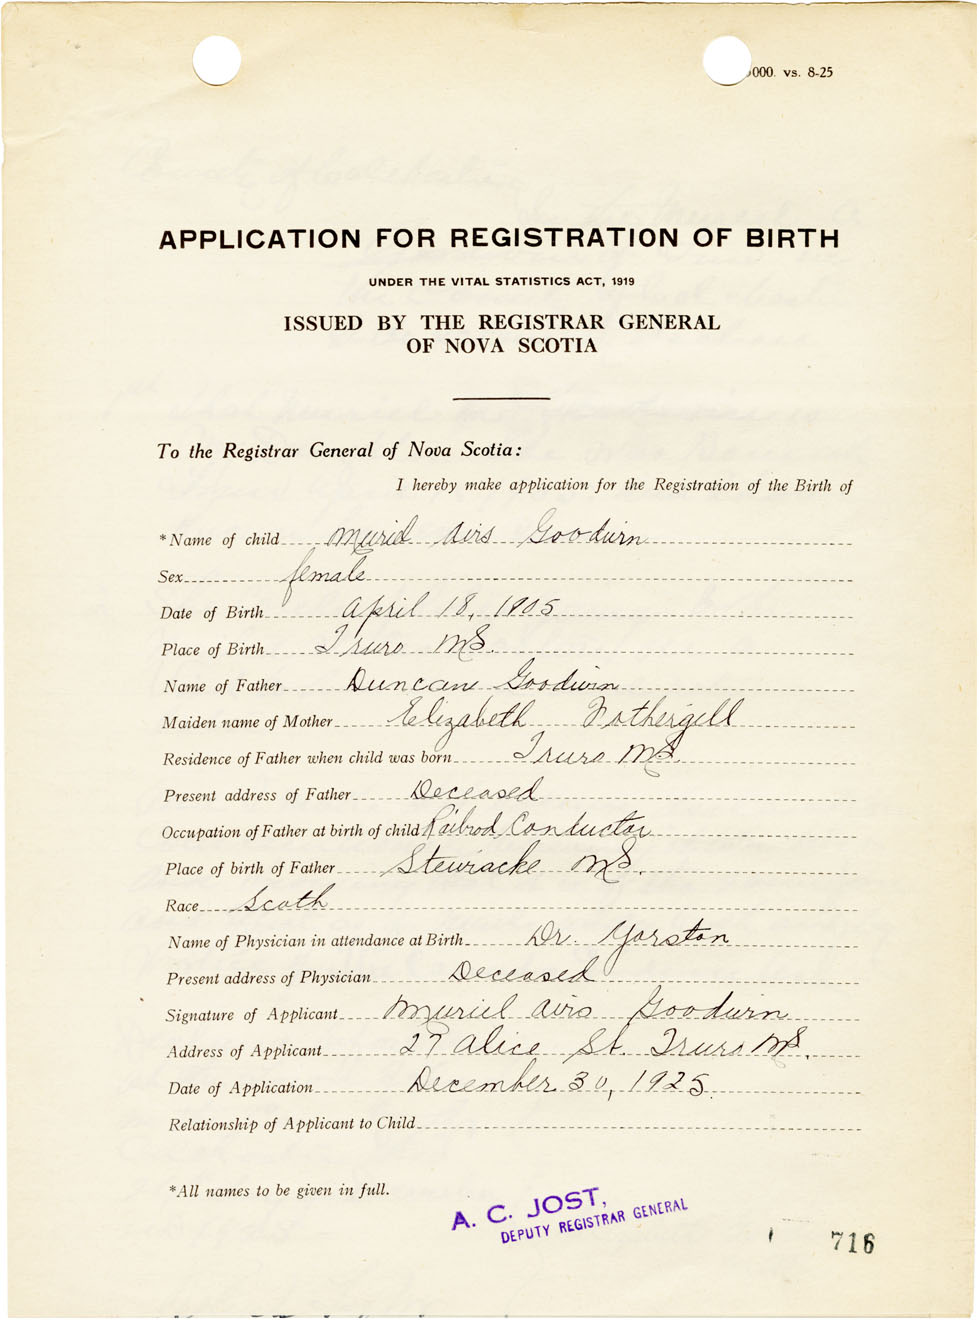 000. vs. 8-25
APPLICATION FOR REGISTRATION OF BIRTH
UNDER THE VITAL STATISTICS ACT, 1919
ISSUED BY THE REGISTRAR GENERAL
OF NOVA SCOTIA
To the Registrar General of Nova Scotia:
I hereby make application for the Registration of the Birth of
*Name of child Muriel Airs Goodwin
Sex female
Date of Birth April 18, 1905
Place of Birth Truro NS.
Name of Father Duncan Goodwin
Maiden name of Mother Elizabeth Fothergill
Residence of Father when child was born Truro NS.
Present address of Father Deceased
Occupation of Father at birth of child Railrod Conductor
Place of birth of Father Stewiacke NS.
Race Scoth
Name of Physician in attendance at Birth Dr. Yorston
Present address of Physician Deceased
Signature of Applicant Muriel Airs Goodwin
Address of Applicant 27 Alice St. Truro NS.
Date of Application December 30, 1925.
Relationship of Applicant to Child
*All names to be given in full.
A. C. JOST,
DEPUTY REGISTRAR GENERAL
716